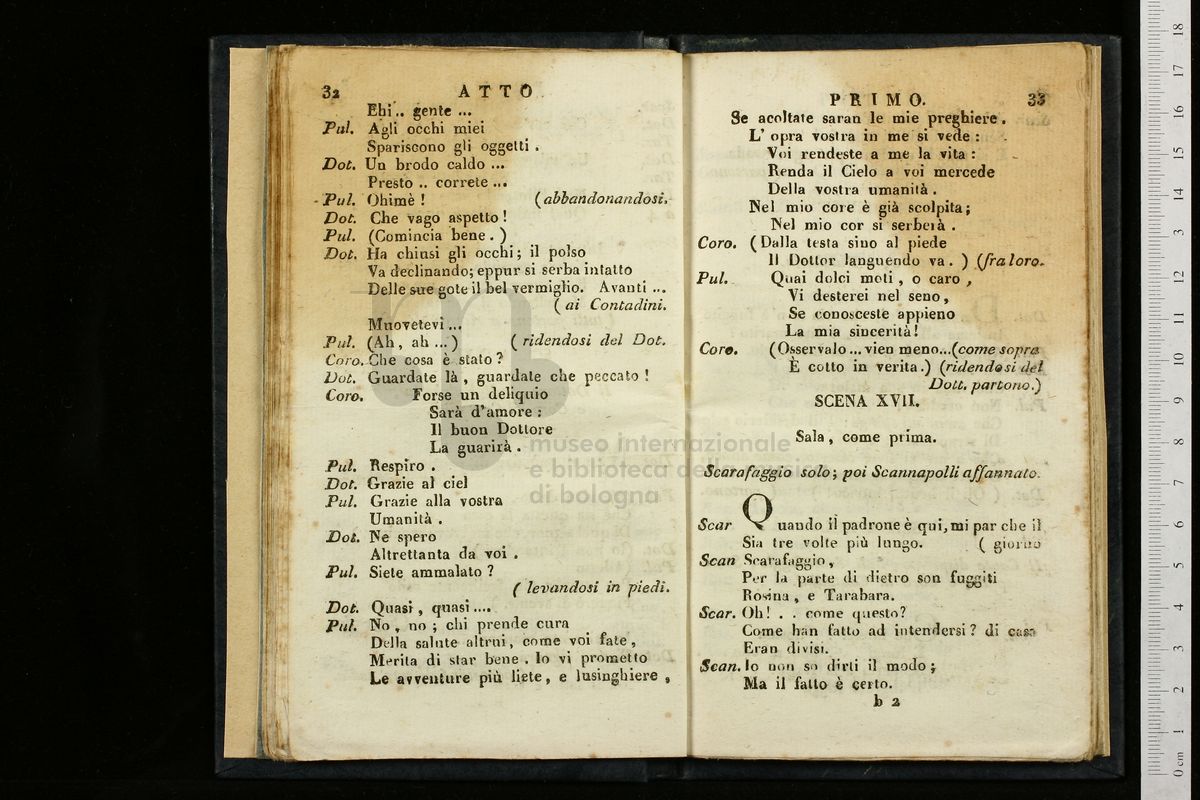 32 ATTO
Ehi .. gente ...
Pul. Agli occhi miei
Spariscono gli oggetti .
Dot. Un brodo caldo ...
Presto .. correte ...
Pul. Ohimè ! (abbandonandosi.
Dot. Che vago aspetto !
Pul. (Comincia bene . )
Dot. Ha chiusi gli occhi ; il polso
Va declinando; eppur si serba intatto
Delle sue gote il bel vermiglio. Avanti ...
( ai Contadini.
Muovetevi ...
Pul. (Ah, ah ... ) ( ridendosi del Dot.
Coro. Che cosa è stato ?
Dot. Guardate là , guardate che peccato !
Coro. Forse un deliquio
Sarà d'amore :
Il buon Dottore
La guarirà .
Pul. Respiro .
Dot. Grazie al ciel
Pul. Grazie alla vostra
Umanità .
Dot. Ne spero
Altrettanta da voi .
Pul. Siete ammalato ?
( levandosi in piedi.
Dot. Quasi , quasi ....
Pul. No , no ; chi prende cura
Della salute altrui, come voi fate ,
Merita di star bene . Io vi prometto
Le avventure più liete , e lusinghiere ,
PRIMO. 33
Se acoltate saran le mie preghiere .
L' opra vostra in me si vede :
Voi rendeste a me la vita :
Renda il Cielo a voi mercede
Della vostra umanità .
Nel mio core è già scolpita ;
Nel mio cor si serberà .
Coro. (Dalla testa sino al piede
Il Dottor languendo va . ) (fra loro.
Pul. Quai dolci moti , o caro ,
Vi desterei nel seno ,
Se conosceste appieno
La mia sincerità !
Coro. (Osservalo ... vien meno...(come sopra
È cotto in verita.) (ridendosi del
Dott. partono.)
SCENA XVII.
Sala , come prima.
Scarafaggio solo ; poi Scannapolli affannato.
Scar Quando il padrone è qui, mi par che il
Sia tre volte più lungo. ( giorno
Scan Scarafaggio ,
Per la parte di dietro son fuggiti
Rosina , e Tarabara.
Scar. Oh! . . come questo?
Come han fatto ad intendersi ? di casa
Eran divisi.
Scan. Io non so dirti il modo ;
Ma il fatto è certo.
b 2
museo internazionale
e biblioteca della musica
di bologna
0 cm 1 2 3 4 5 6 7 8 9 10 11 12 13 14 15 16 17 18